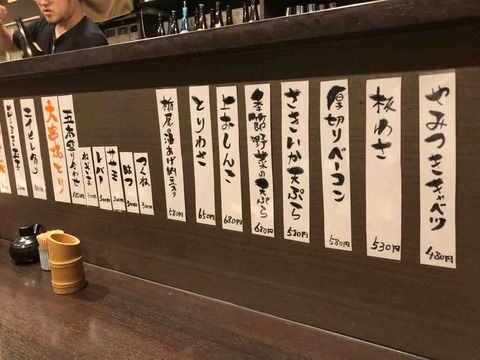 やみつきキャベツ
480円
板わさ
530円
厚切りベーコン
580円
さきいか天ぷら
580円
季節野菜の天ぷら
680円
上おしんこ
680円
とりわさ
650円
580円
つくね
はつ
ササミ
レバー
五本盛り合わせ
大串焼とり